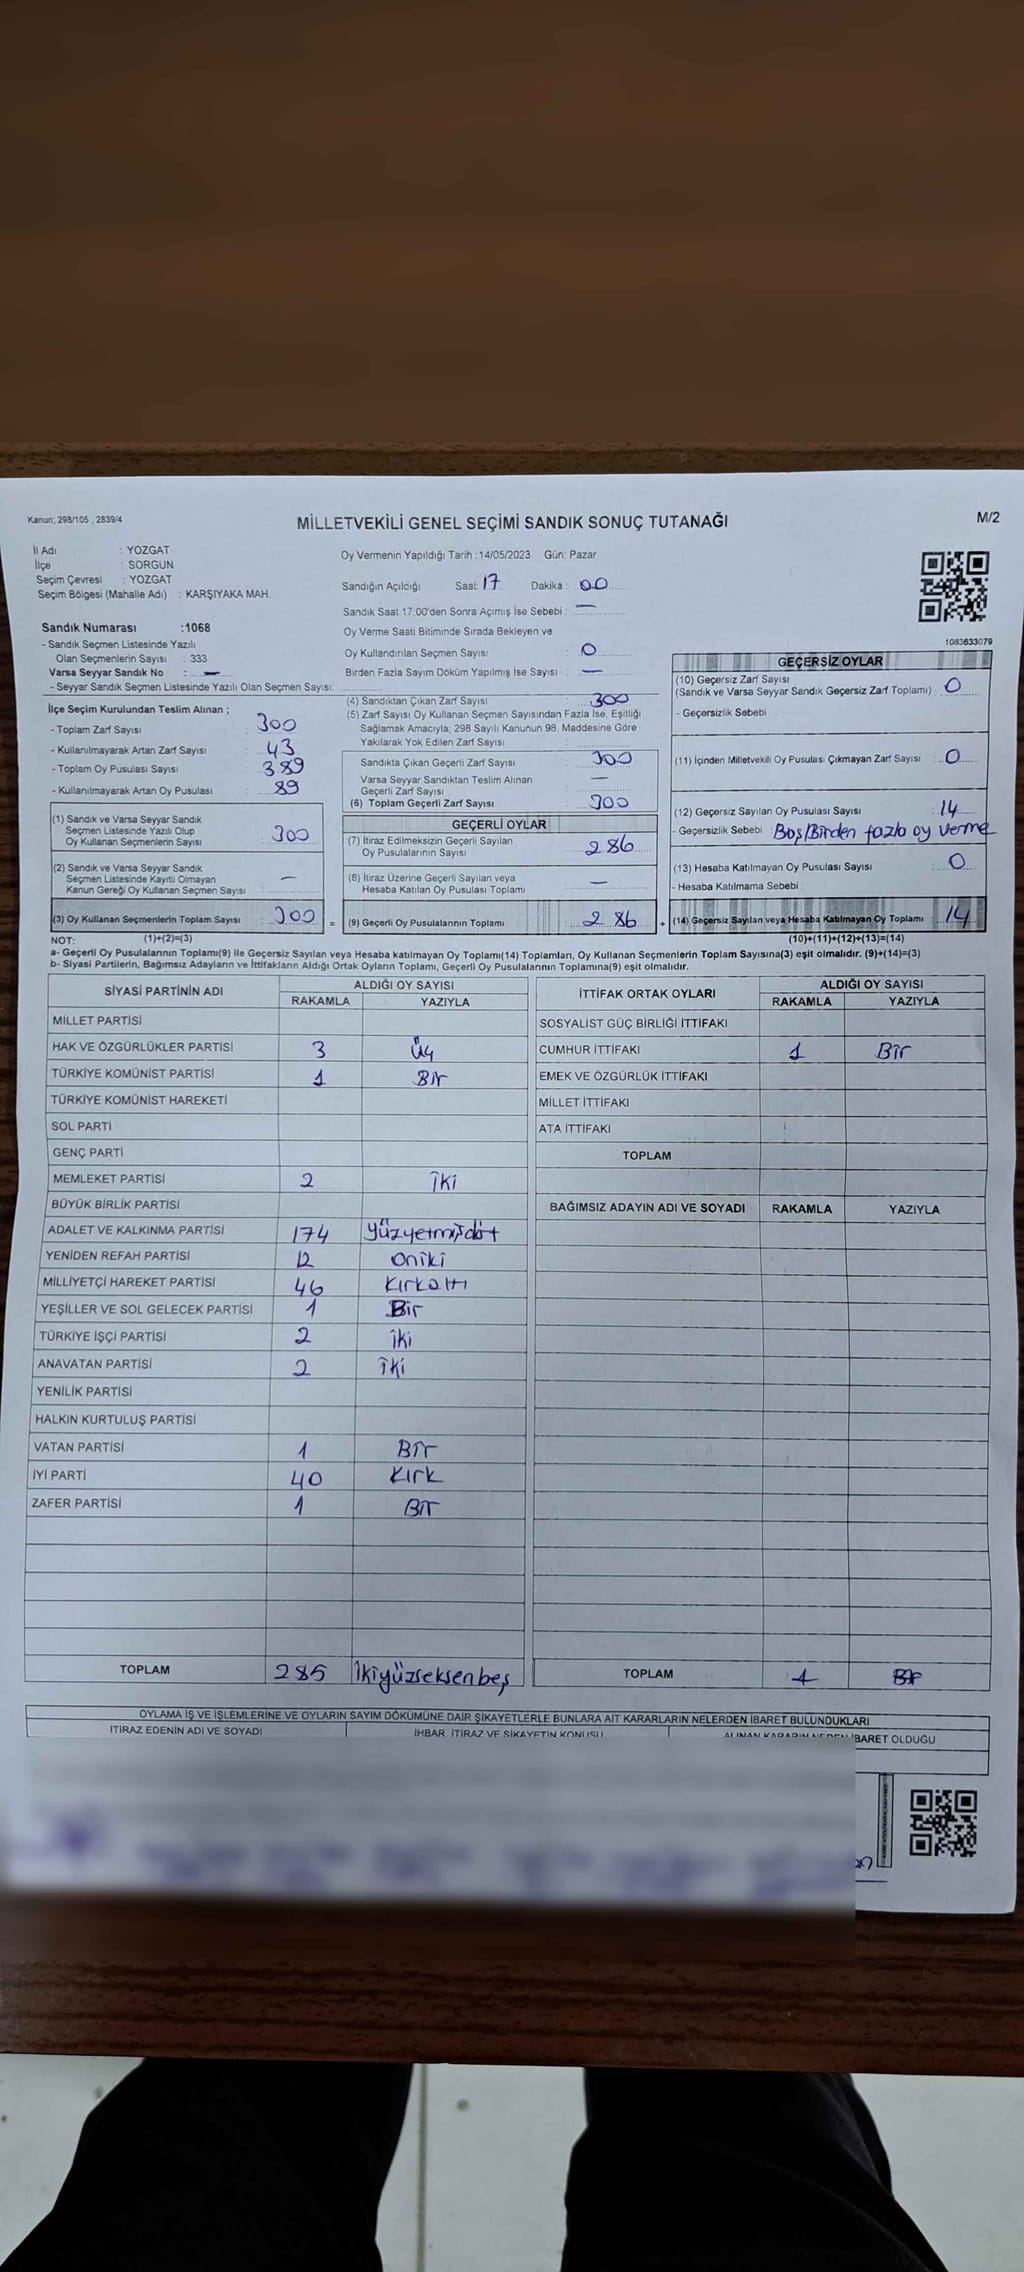 Kanun; 298/105 , 2839/4
MİLLETVEKİLİ GENEL SEÇİMİ SANDIK SONUÇ TUTANAĞI
M/2
İl Adı : YOZGAT
İlçe : SORGUN
Seçim Çevresi : YOZGAT
Seçim Bölgesi (Mahalle Adı) : KARŞIYAKA MAH.
Sandık Numarası :1068
- Sandık Seçmen Listesinde Yazılı
Olan Seçmenlerin Sayısı : 333
Varsa Seyyar Sandık No : —
- Seyyar Sandık Seçmen Listesinde Yazılı Olan Seçmen Sayısı:
İlçe Seçim Kurulundan Teslim Alınan ;
- Toplam Zarf Sayısı : 300
- Kullanılmayarak Artan Zarf Sayısı : 43
- Toplam Oy Pusulası Sayısı : 389
- Kullanılmayarak Artan Oy Pusulası : 89
(1) Sandık ve Varsa Seyyar Sandık
Seçmen Listesinde Yazılı Olup
Oy Kullanan Seçmenlerin Sayısı : 300
(2) Sandık ve Varsa Seyyar Sandık
Seçmen Listesinde Kayıtlı Olmayan
Kanun Gereği Oy Kullanan Seçmen Sayısı : —
(3) Oy Kullanan Seçmenlerin Toplam Sayısı : 300
Oy Vermenin Yapıldığı Tarih :14/05/2023 Gün: Pazar
Sandığın Açıldığı Saat: 17 Dakika : 00
Sandık Saat 17:00'den Sonra Açımış İse Sebebi : —
Oy Verme Saati Bitiminde Sırada Bekleyen ve
Oy Kullandırılan Seçmen Sayısı : 0
Birden Fazla Sayım Döküm Yapılmış İse Sayısı : —
(4) Sandıktan Çıkan Zarf Sayısı : 300
(5) Zarf Sayısı Oy Kullanan Seçmen Sayısından Fazla İse, Eşitliği
Sağlamak Amacıyla; 298 Sayılı Kanunun 98. Maddesine Göre
Yakılarak Yok Edilen Zarf Sayısı :
Sandıkta Çıkan Geçerli Zarf Sayısı : 300
Varsa Seyyar Sandıktan Teslim Alınan
Geçerli Zarf Sayısı : —
(6) Toplam Geçerli Zarf Sayısı : 300
GEÇERLİ OYLAR
(7) İtiraz Edilmeksizin Geçerli Sayılan
Oy Pusulalarının Sayısı : 286
(8) İtiraz Üzerine Geçerli Sayılan veya
Hesaba Katılan Oy Pusulası Toplamı : —
= (9) Geçerli Oy Pusulalarının Toplamı : 286
1083633079
GEÇERSİZ OYLAR
(10) Geçersiz Zarf Sayısı
(Sandık ve Varsa Seyyar Sandık Geçersiz Zarf Toplamı) : 0
- Geçersizlik Sebebi :
(11) İçinden Milletvekili Oy Pusulası Çıkmayan Zarf Sayısı : 0
(12) Geçersiz Sayılan Oy Pusulası Sayısı : 14
- Geçersizlik Sebebi : Boş/Birden fazla oy verme
(13) Hesaba Katılmayan Oy Pusulası Sayısı : 0
- Hesaba Katılmama Sebebi :
+ (14) Geçersiz Sayılan veya Hesaba Katılmayan Oy Toplamı : 14
NOT: (1)+(2)=(3)
(10)+(11)+(12)+(13)=(14)
a- Geçerli Oy Pusulalarının Toplamı(9) ile Geçersiz Sayılan veya Hesaba katılmayan Oy Toplamı(14) Toplamları, Oy Kullanan Seçmenlerin Toplam Sayısına(3) eşit olmalıdır. (9)+(14)=(3)
b- Siyasi Partilerin, Bağımsız Adayların ve İttifakların Aldığı Ortak Oyların Toplamı, Geçerli Oy Pusulalarının Toplamına(9) eşit olmalıdır.
SİYASİ PARTİNİN ADI ALDIĞI OY SAYISI
RAKAMLA YAZIYLA
MİLLET PARTİSİ
HAK VE ÖZGÜRLÜKLER PARTİSİ 3 Üç
TÜRKİYE KOMÜNİST PARTİSİ 1 Bir
TÜRKİYE KOMÜNİST HAREKETİ
SOL PARTİ
GENÇ PARTİ
MEMLEKET PARTİSİ 2 İki
BÜYÜK BİRLİK PARTİSİ
ADALET VE KALKINMA PARTİSİ 174 Yüzyetmişdört
YENİDEN REFAH PARTİSİ 12 oniki
MİLLİYETÇİ HAREKET PARTİSİ 46 Kırkaltı
YEŞİLLER VE SOL GELECEK PARTİSİ 1 Bir
TÜRKİYE İŞÇİ PARTİSİ 2 İki
ANAVATAN PARTİSİ 2 İki
YENİLİK PARTİSİ
HALKIN KURTULUŞ PARTİSİ
VATAN PARTİSİ 1 Bir
İYİ PARTİ 40 Kırk
ZAFER PARTİSİ 1 Bir
TOPLAM 285 İkiyüzseksenbeş
İTTİFAK ORTAK OYLARI ALDIĞI OY SAYISI
RAKAMLA YAZIYLA
SOSYALİST GÜÇ BİRLİĞİ İTTİFAKI
CUMHUR İTTİFAKI 1 Bir
EMEK VE ÖZGÜRLÜK İTTİFAKI
MİLLET İTTİFAKI
ATA İTTİFAKI
TOPLAM
BAĞIMSIZ ADAYIN ADI VE SOYADI RAKAMLA YAZIYLA
TOPLAM 1 Bir
OYLAMA İŞ VE İŞLEMLERİNE VE OYLARIN SAYIM DÖKÜMÜNE DAİR ŞİKAYETLERLE BUNLARA AİT KARARLARIN NELERDEN İBARET BULUNDUKLARI
İTİRAZ EDENİN ADI VE SOYADI İHBAR, İTİRAZ VE ŞİKAYETİN KONUSU ALINAN KARARIN NEDEN İBARET OLDUĞU